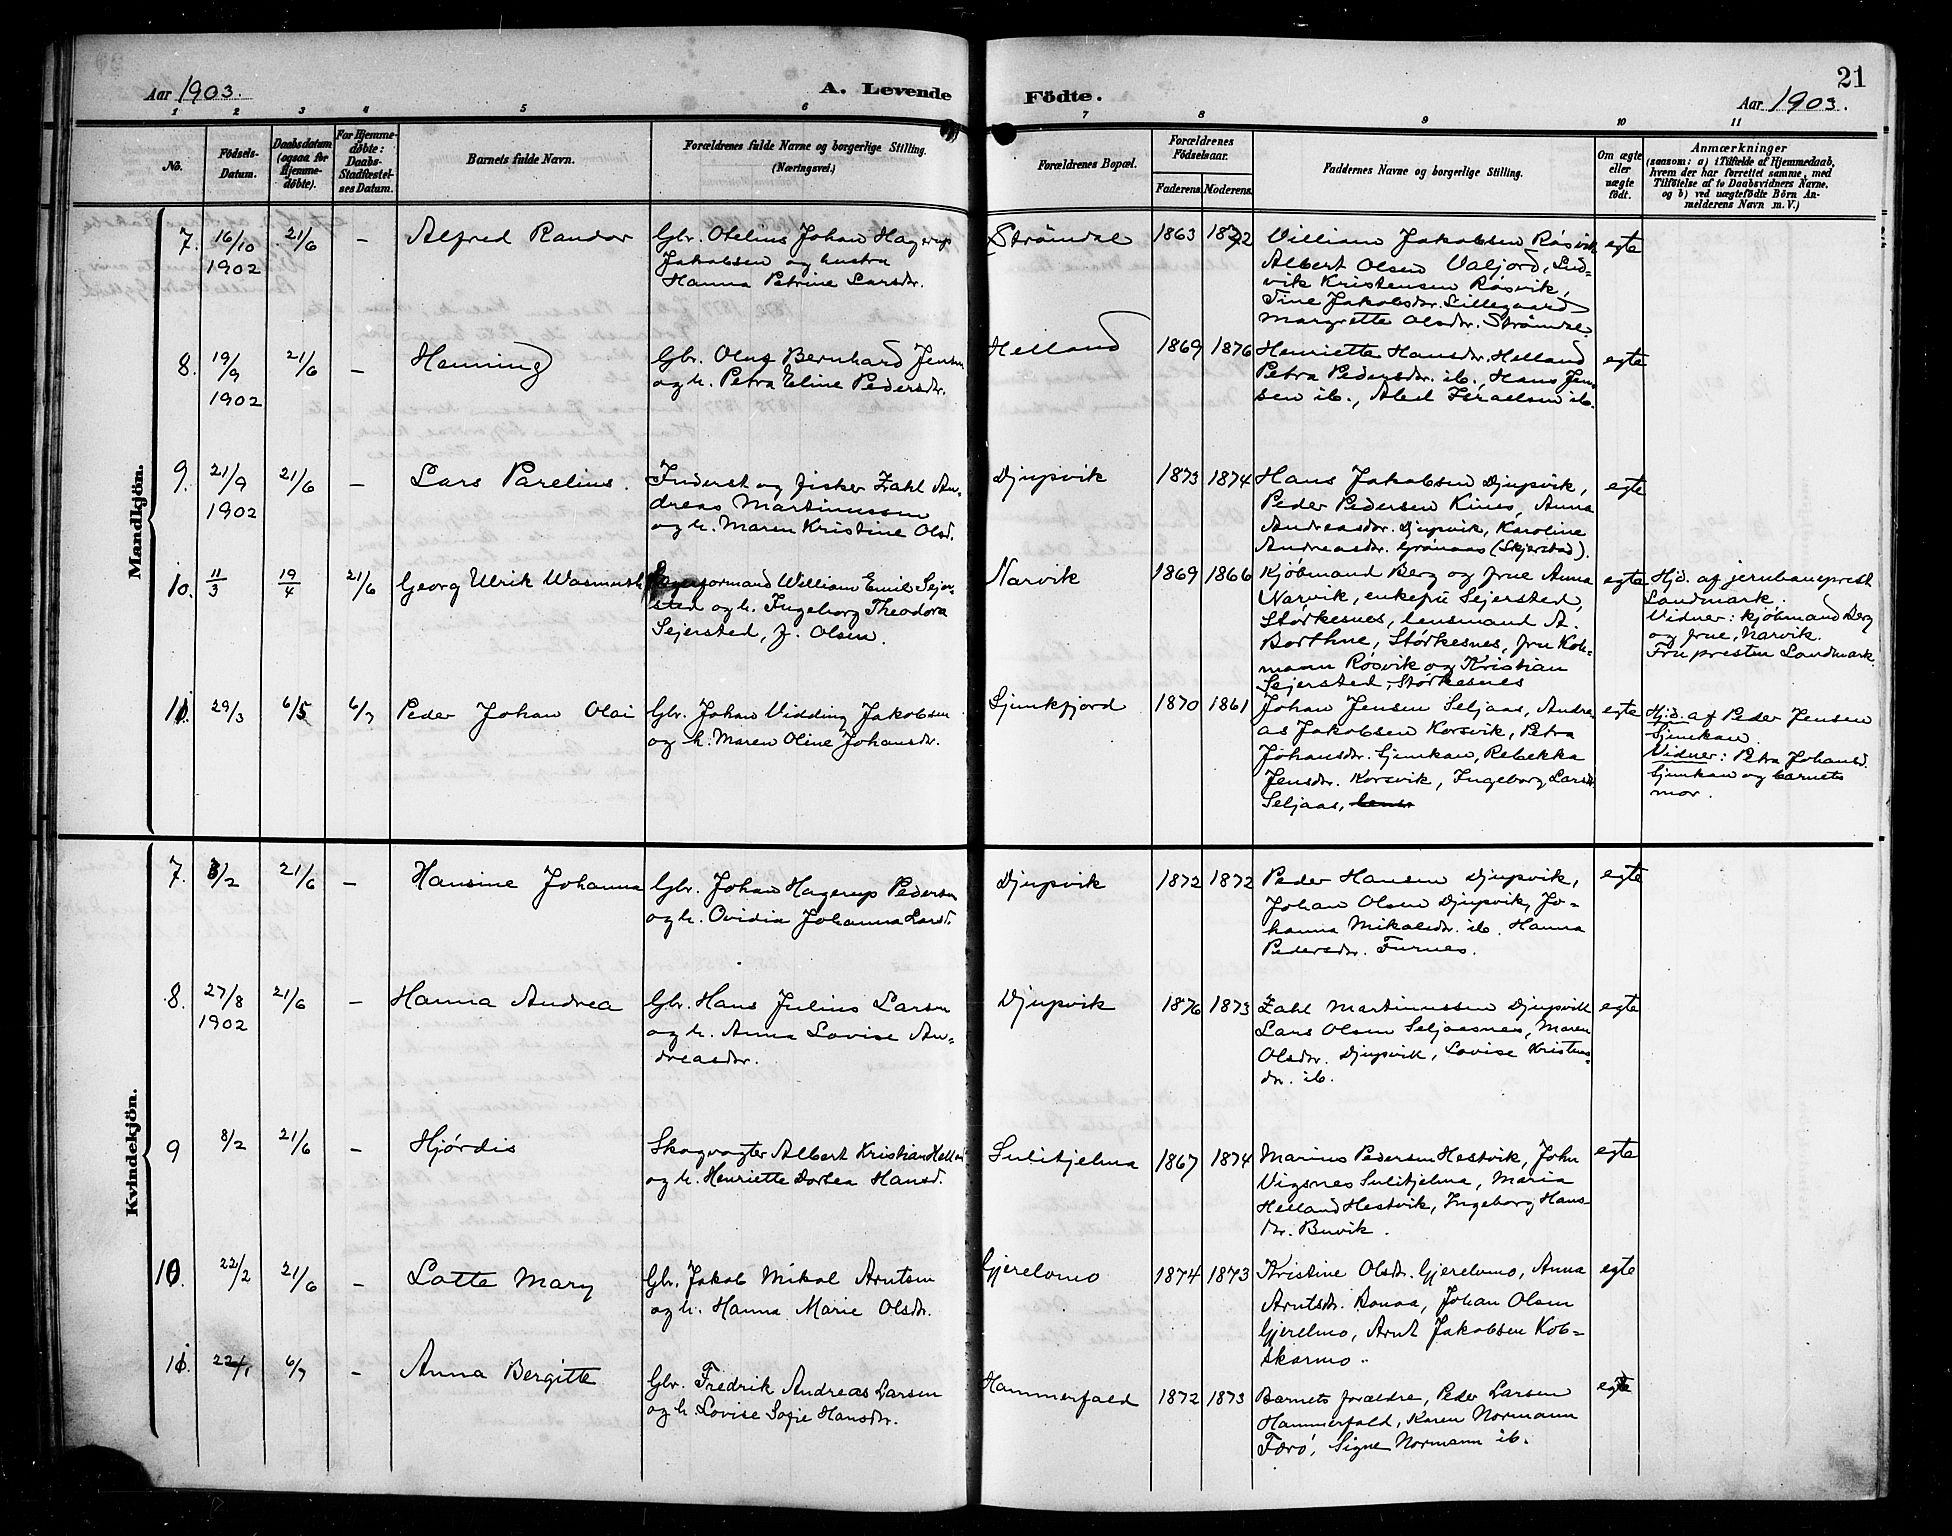 21
Aar 1903.
A. Levende Födte.
Aar 1903.
1 2 3 4 5 6 7 8 9 10 11
No.
Födsels-Datum.
Daabsdatum (ogsaa for Hjemme-döbte).
For Hjemme-döbte: Daabs-Stadfæstel-ses Datum.
Barnets fulde Navn.
Forældrenes fulde Navne og borgerlige Stilling.
(Næringsvei.)
Forældrenes Bopæl.
Forældrenes Födselsaar.
Faderens. Moderens.
Faddernes Navne og borgerlige Stilling.
Om ægte eller uægte födt.
Anmærkninger
(saasom: a) i Tilfælde af Hjemmedaab,
hvem der har forrettet samme, med
Tilföielse af to Daabsvidners Navne,
og b) ved uægtefödte Börn An-
melderens Navn m. V.)
Mandkjön.
7. 16/10 1902 21/6 – Alfred Randor
Gbr. Otelius Johan Hagerup
Jakobsen og hustru
Hanna Petrine Larsdr.
Strömdal 1863 1872
William Jakobsen Røsvik
Albert Olsen Valjord, Lud-
vik Kristensen Røsvik,
Tine Jakobsdr. Lillegaard
Margrette Olsdr. Strömdal
egte
8. 19/9 1902 21/6 – Henning
Gbr. Oluf Bernhard Jensen
og h. Petra Eline Pedersdr.
Helland 1869 1876
Henriette Hansdr. Helland
Petra Pedersdr. ib., Hans Jen-
sen ib., Abel Israelsen ib.
egte
9. 21/9 1902 21/6 – Lars Parelius.
Inderst og fisker Zahl An-
dreas Martinussen
og h. Maren Kristine Olsd.
Djupvik 1873 1874
Hans Jakobsen Djupvik,
Peder Pedersen Kines, Anna
Andreasdr. Djupvik, Karoline
Andreasdr. Grönaas (Skjerstad).
egte
10. 11/3 19/4 21/6 Georg Ulrik Wasmuth
William Emil Sejer-
sted og h. Ingeborg Theodora
Sejersted, f. Olsen.
Narvik 1869 1866
Kjöbmand Berg og frue Anna
Narvik, enkefru Sejersted,
Störkesnes, lensmand A.
Borthne, Störkesnes, fru Kob-
mann Røsvik og Kristian
Sejersted, Störkesnes
egte
Hjd. af jernbaneprest
Landmark.
Vidner: kjöbmand Berg
og frue, Narvik.
Fru presten Landmark
11. 29/3 6/5 6/7 Peder Johan Olai
Gbr. Johan Vidding Jakobsen
og h. Maren Oline Johansdr.
Sjunkfjord 1870 1861
Johan Jensen Seljaas, Andre-
as Jakobsen Korsvik, Petra
Johansdr. Sjunkan, Rebekka
Jensdr. Korsvik, Ingeborg Larsdr
Seljaas,
egte
Hjd. af Peder Jensen
Sjunkan.
Vidner: Petra Johansd.
Sjunkan og barnets
mor.
Kvindekjön.
7. 3/2 21/6 – Hansine Johanna
Gbr. Johan Hagerup Pedersen
og h. Ovidia Johanna Larsd.
Djupvik 1872 1872
Peder Hansen Djupvik,
Johan Olsen Djupvik, Jo-
hanna Mikalsdr. ib. Hanna
Pedersdr. Furnes.
egte
8. 27/8 1902 21/6 – Hanna Andrea
Gbr. Hans Julius Larsen
og h. Anna Lovise An-
dreasdr.
Djupvik 1876 1873
Zahl Martinussen Djupvik
Lars Olsen Seljaesnes, Maren
Olsdr. Djupvik, Lovise Kristens-
dr. ib.
egte
9 8/2 21/6 – Hjørdis
Skogvogter Albert Kristian Helland
og h. Henriette Dortea Hansd.
Sulitjelma 1867 1874
Marius Pedersen Hestvik, John
Vigsnes Sulitjelma, Maria
Helland Hestvik, Ingeborg Hans-
dr. Buvik.
egte
10. 22/2 21/6 – Lotte Mary
Gbr. Jakob Mikal Arntsen
og h. Hanna Marie Olsdr.
Gjerelvmo 1874 1873
Kristine Olsdr. Gjerelvmo, Anna
Arntsdr. Bonaa, Johan Olsen
Gjerelmo, Arnt Jakobsen Kob-
skarmo.
egte
11. 6/7 – Anna Bergitte
Gbr. Fredrik Andreas Larsen
og h. Lovise Sofie Hansdr.
Hammerfald 1872 1873
Barnets forældre, Peder Larsen
Hammerfald, Karen Normann
Færö, Signe Normann ib.
egte